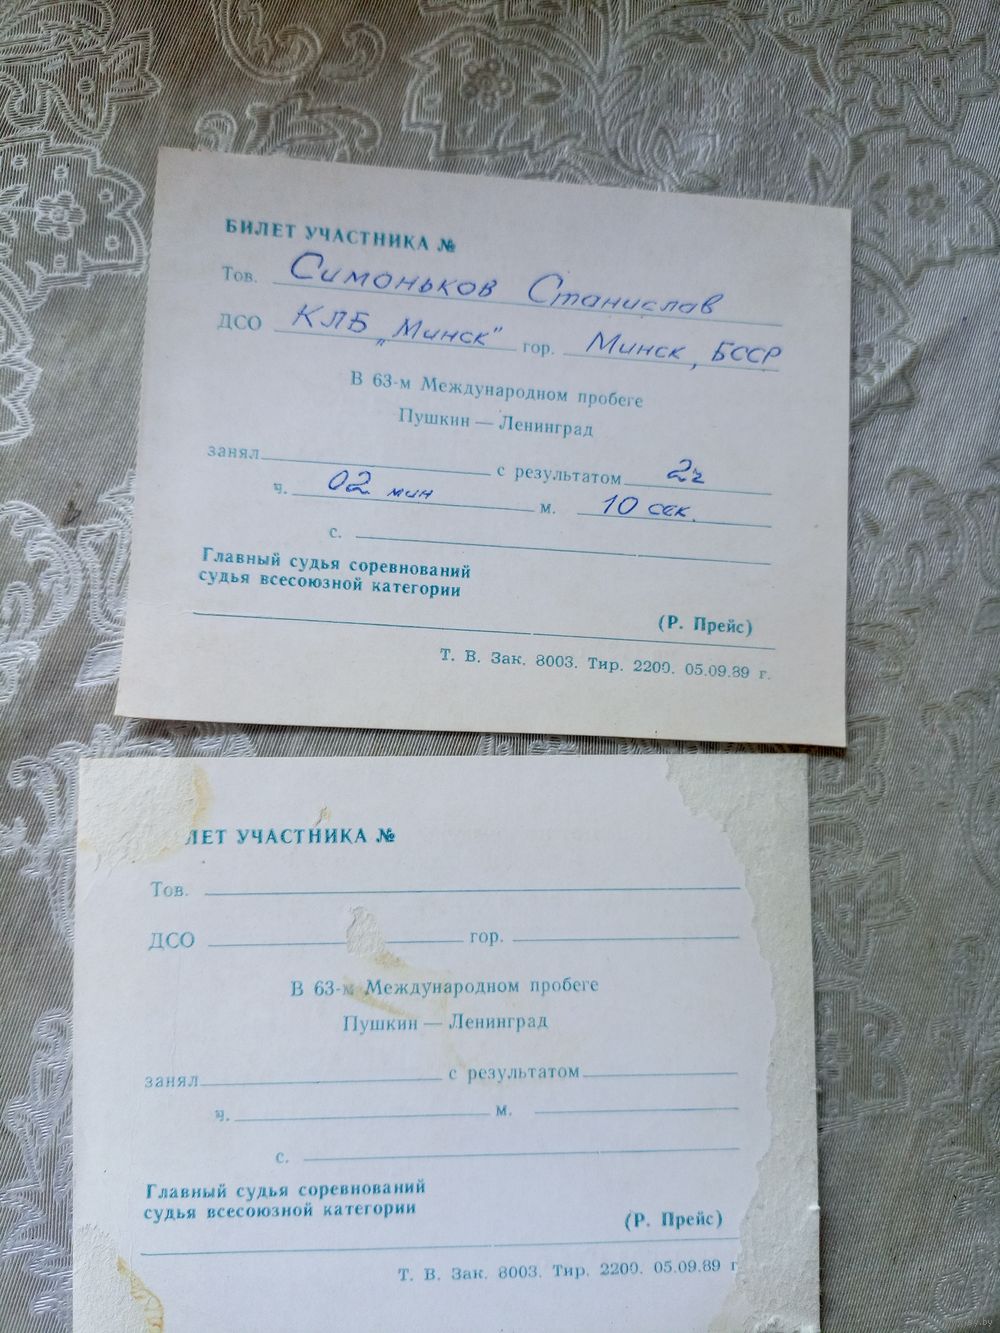 БИЛЕТ УЧАСТНИКА №
Тов. Симоньков Станислав
ДСО КЛБ „Минск" гор. Минск, БССР
В 63-м Международном пробеге
Пушкин — Ленинград
занял с результатом 2ч
ч. 02 мин м. 10 сек.
с.
Главный судья соревнований
судья всесоюзной категории
(Р. Прейс)
Т. В. Зак. 8003. Тир. 2200. 05.09.89 г.
ЛЕТ УЧАСТНИКА №
Тов.
ДСО гор.
В 63-м Международном пробеге
Пушкин — Ленинград
занял с результатом
ч. м.
с.
Главный судья соревнований
судья всесоюзной категории
(Р. Прейс)
Т. В. Зак. 8003. Тир. 2200. 05.09.89 г